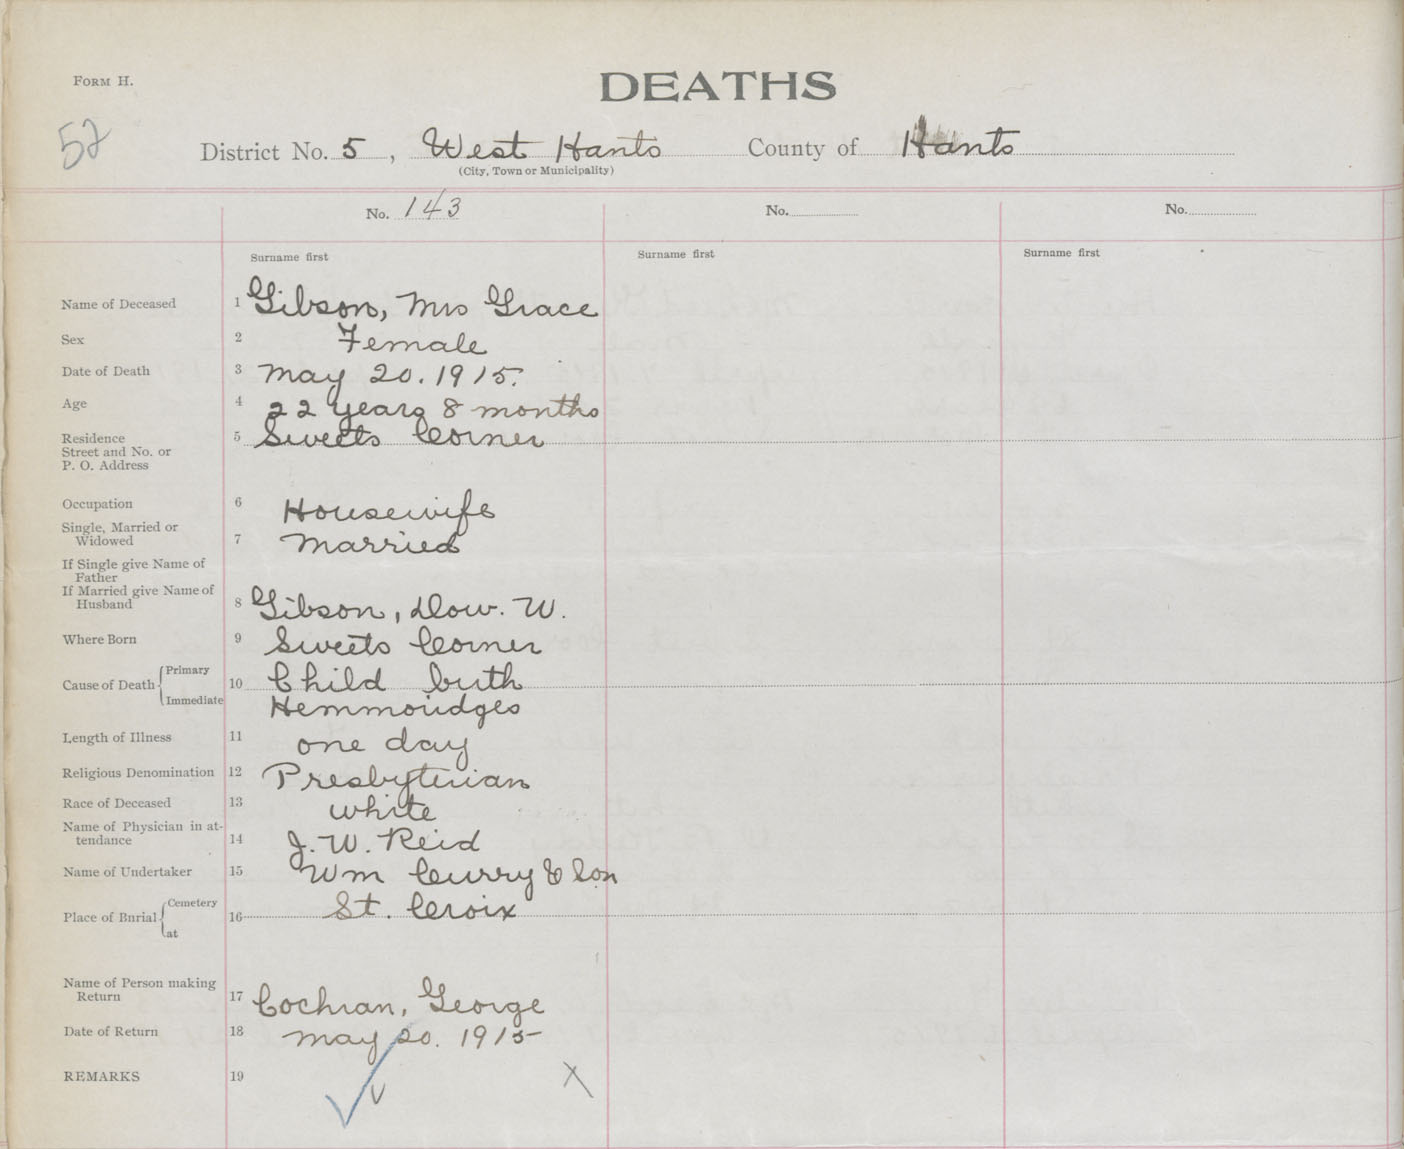 FORM H.
DEATHS
52
District No. 5, West Hants County of Hants
(City, Town or Municipality)
No. 143 No. No.
Surname first Surname first Surname first
Name of Deceased 1 Gibson, Mrs Grace
Sex 2 Female
Date of Death 3 May 20. 1915.
Age 4 22 years 8 months
Residence 5 Sweets Corner
Street and No. or
P. O. Address
Occupation 6 Housewife
Single, Married or
Widowed 7 Married
If Single give Name of
Father
If Married give Name of
Husband 8 Gibson, Dow. W.
Where Born 9 Sweets Corner
Cause of Death Primary 10 Child birth
Immediate Hemmoridges
Length of Illness 11 one day
Religious Denomination 12 Presbyterian
Race of Deceased 13 white
Name of Physician in at-
tendance 14 J. W. Reid
Name of Undertaker 15 Wm Curry & Son
Place of Burial Cemetery 16 St. Croix
at
Name of Person making
Return 17 Cochran, George
Date of Return 18 May 20. 1915
REMARKS 19